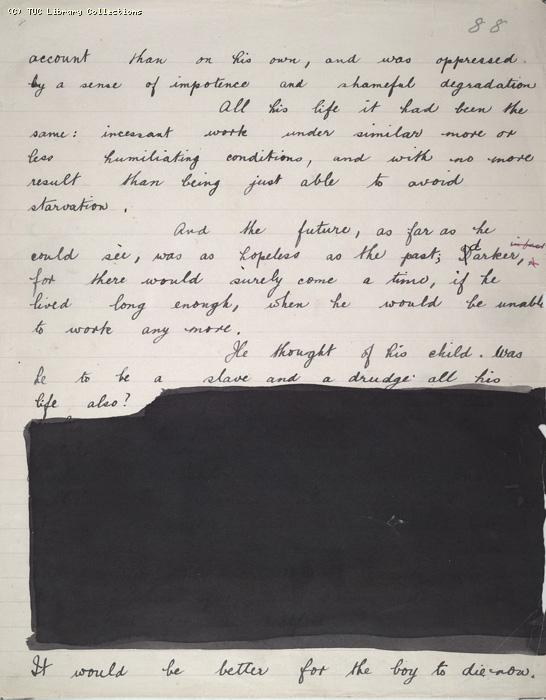 (C) TUC Library Collections
88
account than on his own, and was oppressed
by a sense of impotence and shameful degradation
All his life it had been the
same: incessant work under similar more or
less humiliating conditions, and with no more
result than being just able to avoid
starvation.
And the future, as far as he
could see, was as hopeless as the past; darker,
for there would surely come a time, if he
lived long enough, when he would be unable
to work any more.
He thought of his child. Was
he to be a slave and a drudge all his
life also?
It would be better for the boy to die now.